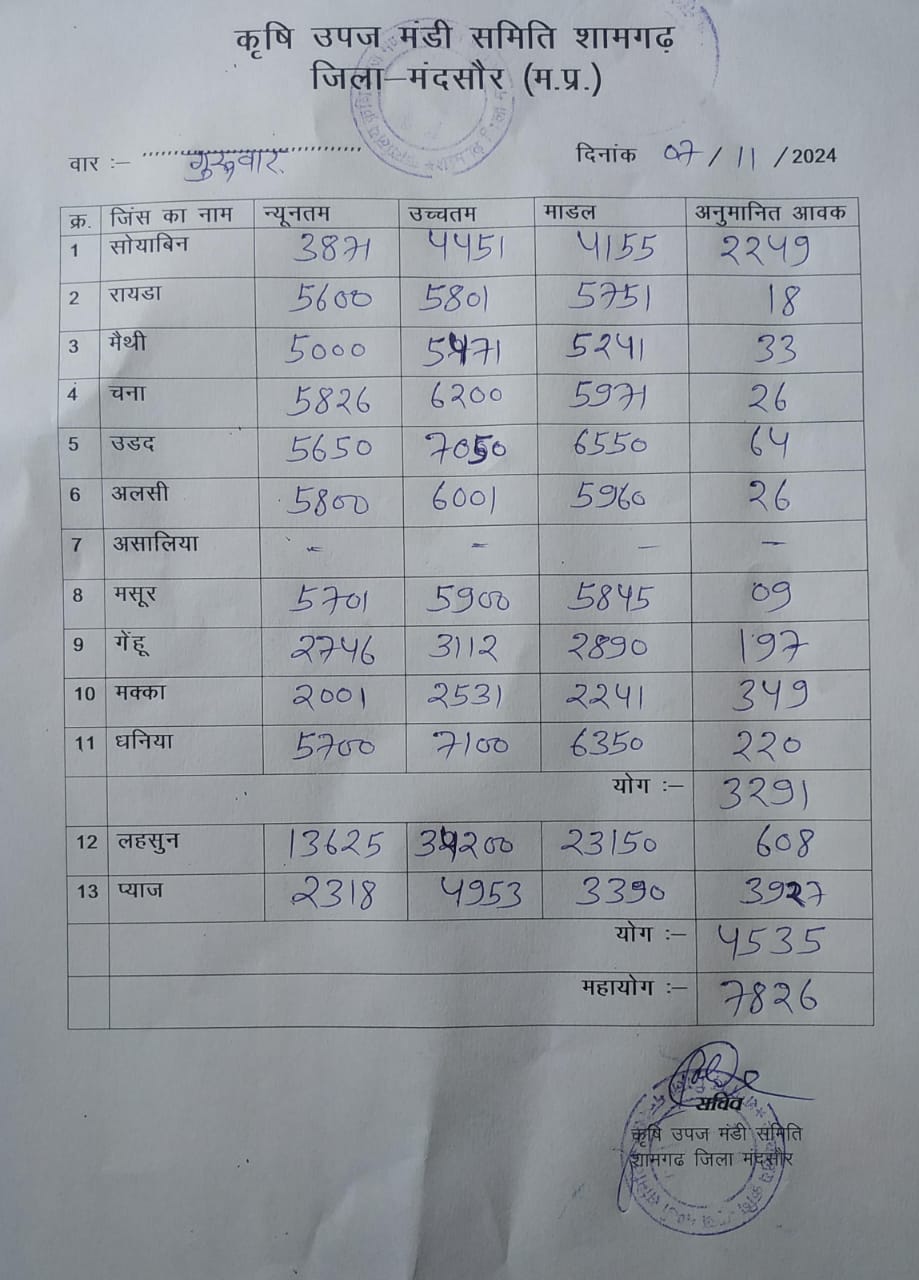 कृषि उपज मंडी समिति शामगढ़
जिला–मंदसौर (म.प्र.)
वार :– गुरूवार. दिनांक 07/11/2024
क्र. जिंस का नाम न्यूनतम उच्चतम माडल अनुमानित आवक
1 सोयाबिन 3871 4451 4155 2249
2 रायडा 5600 5801 5751 18
3 मैथी 5000 5471 5241 33
4 चना 5826 6200 5971 26
5 उडद 5650 7050 6550 64
6 अलसी 5800 6001 5960 26
7 असालिया - - - -
8 मसूर 5701 5900 5845 09
9 गेंहू 2746 3112 2890 197
10 मक्का 2001 2531 2241 349
11 धनिया 5700 7100 6350 220
योग :– 3291
12 लहसुन 13625 34200 23150 608
13 प्याज 2318 4953 3390 3927
योग :– 4535
महायोग :– 7826
सचिव
कृषि उपज मंडी समिति
शामगढ जिला मंदसौर